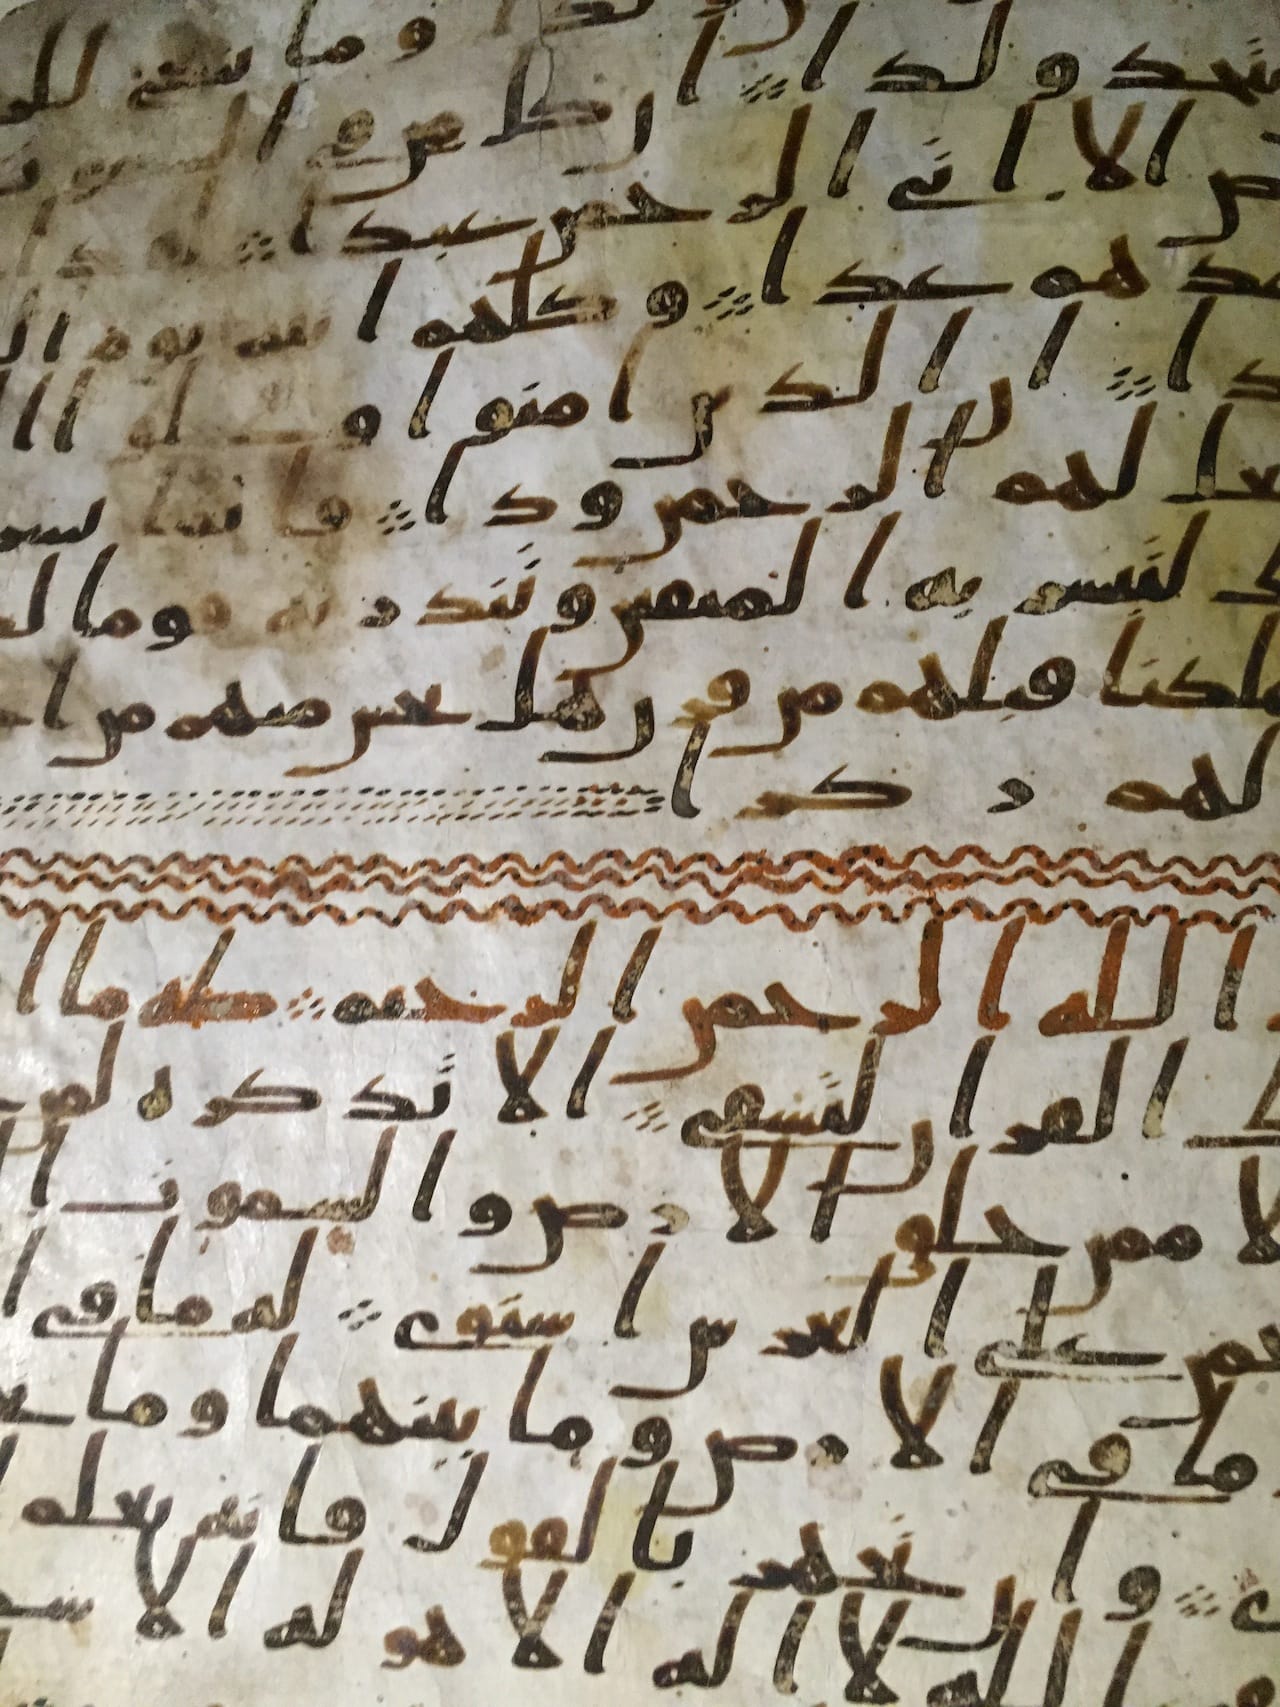 ولدا وما ينبغي للر
يتخذ ولدا ان كل من في السموت
رض الا اتي الرحمن عبدا لقد ا
عدهم عدا وكلهم اتيه يوم ال
دا ان الذين امنوا وعملوا ال
جعل لهم الرحمن ودا فانما يسر
ك لتبشر به المتقين وتنذر به قوما لد
هلكنا قبلهم من قرن هل تحس منهم من ا
لهم ركزا
الله الرحمن الرحيم طه ما ا
ك القران لتشقى الا تذكرة لمن
لا ممن خلق الارض والسموت ال
حمن على العرش استوى له ما في ا
وما في الارض وما بينهما وما
ى وان تجهر بالقول فانه يعلم ا
الله لا اله الا هو له الاسم